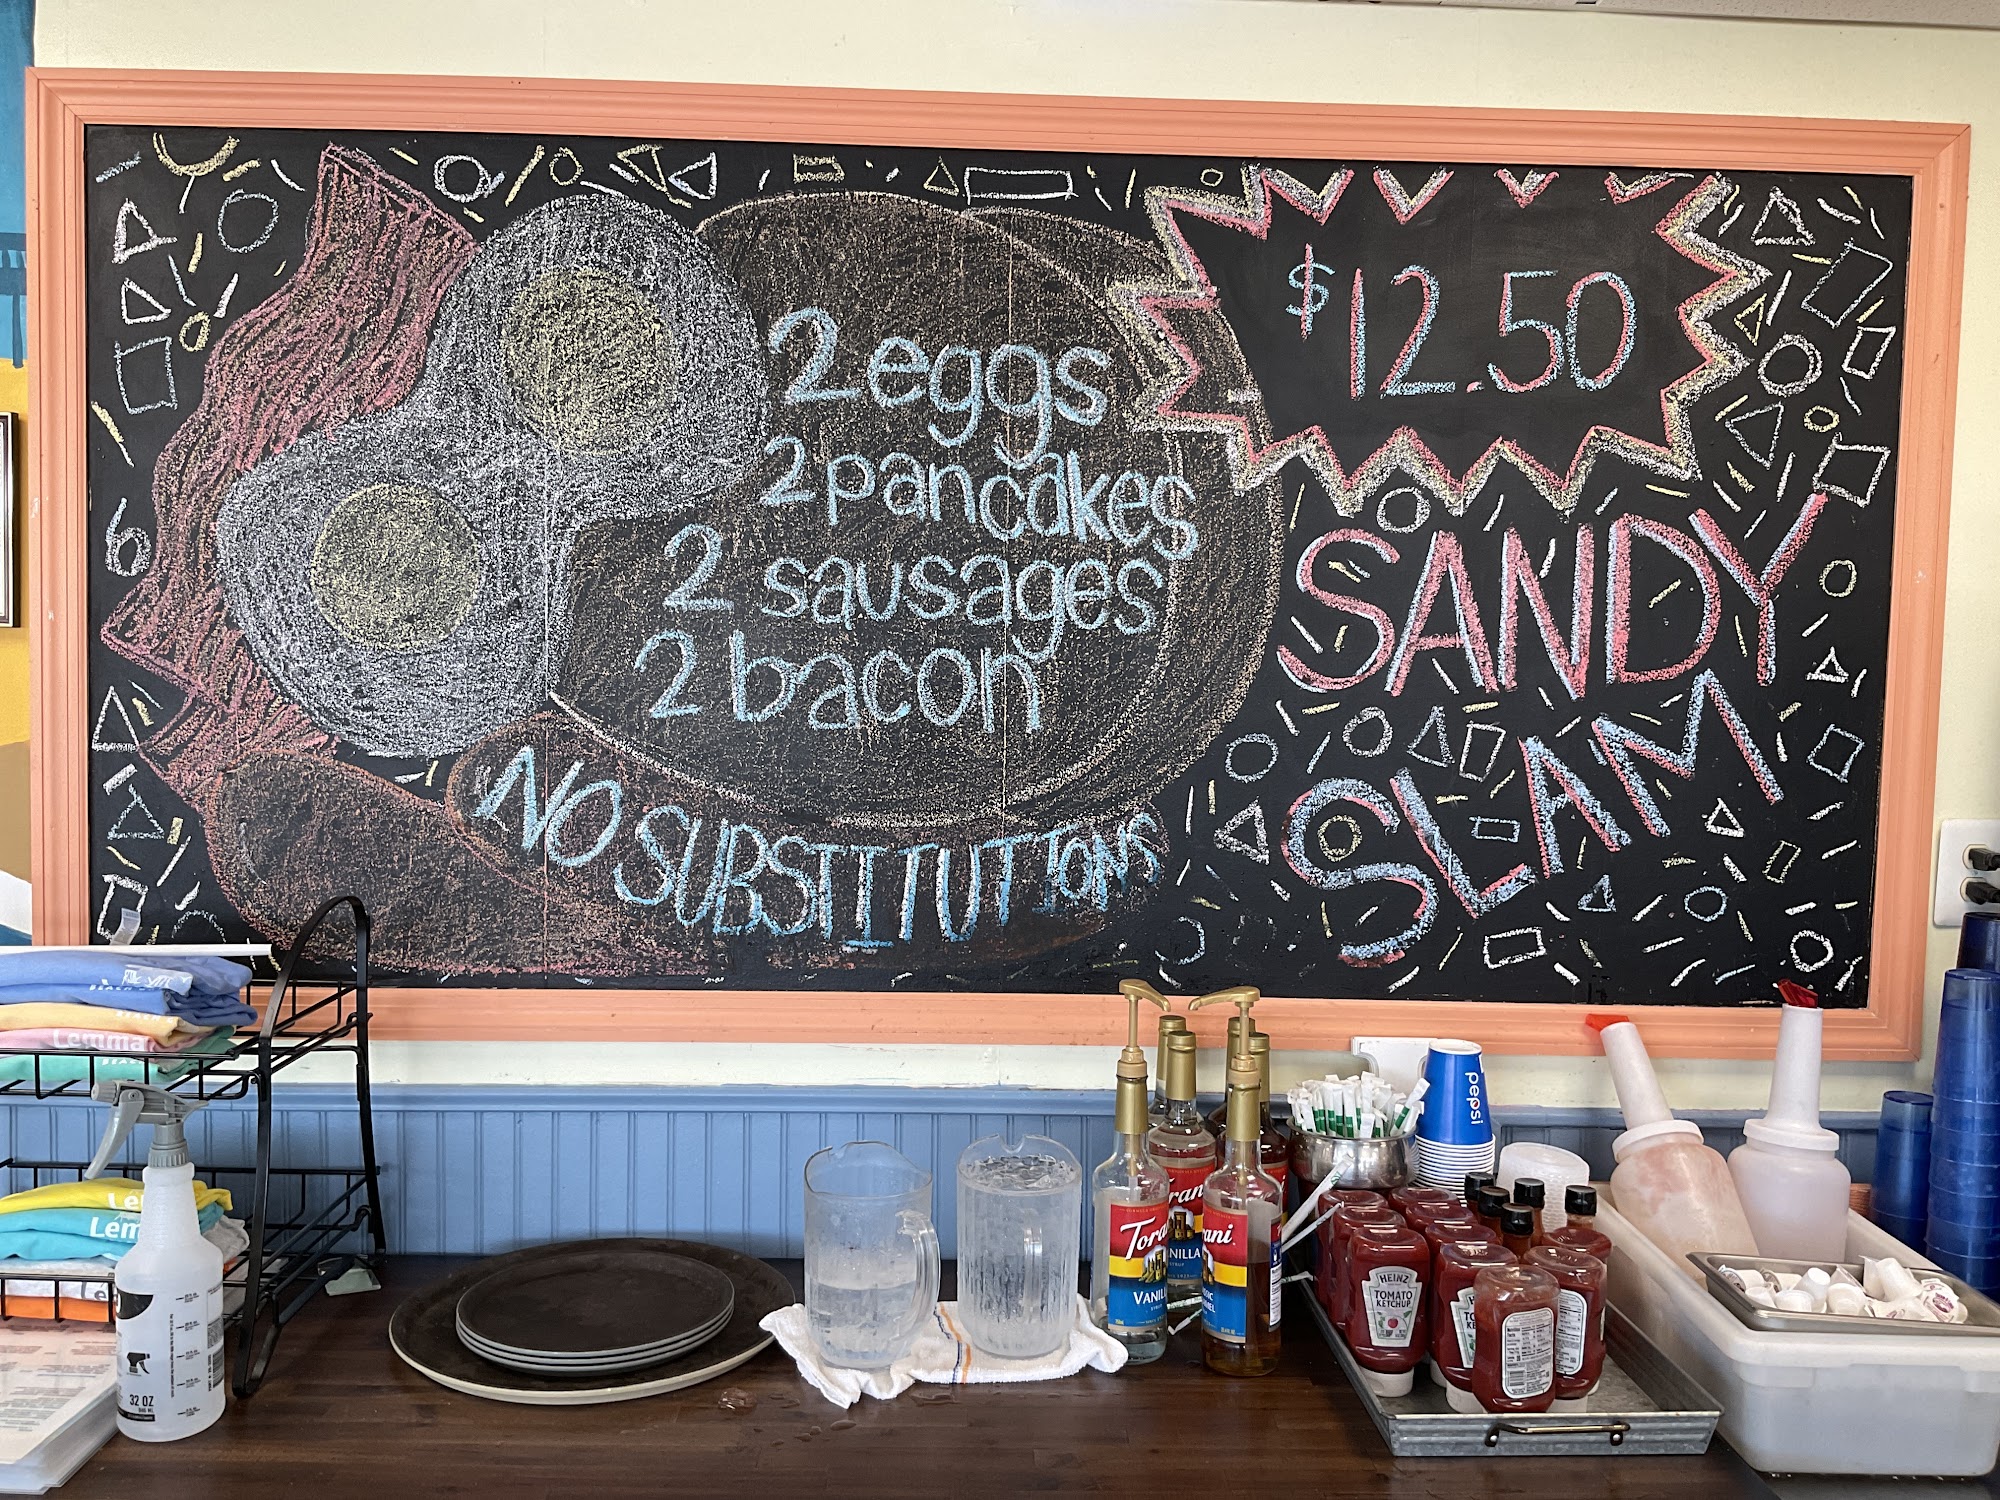 $12.50
2 eggs
2 pancakes
2 sausages
2 bacon
NO SUBSTITUTIONS
SANDY
SLAM
pepsi
Torani
VANILLA
SYRUP
HEINZ
TOMATO
KETCHUP
32 OZ